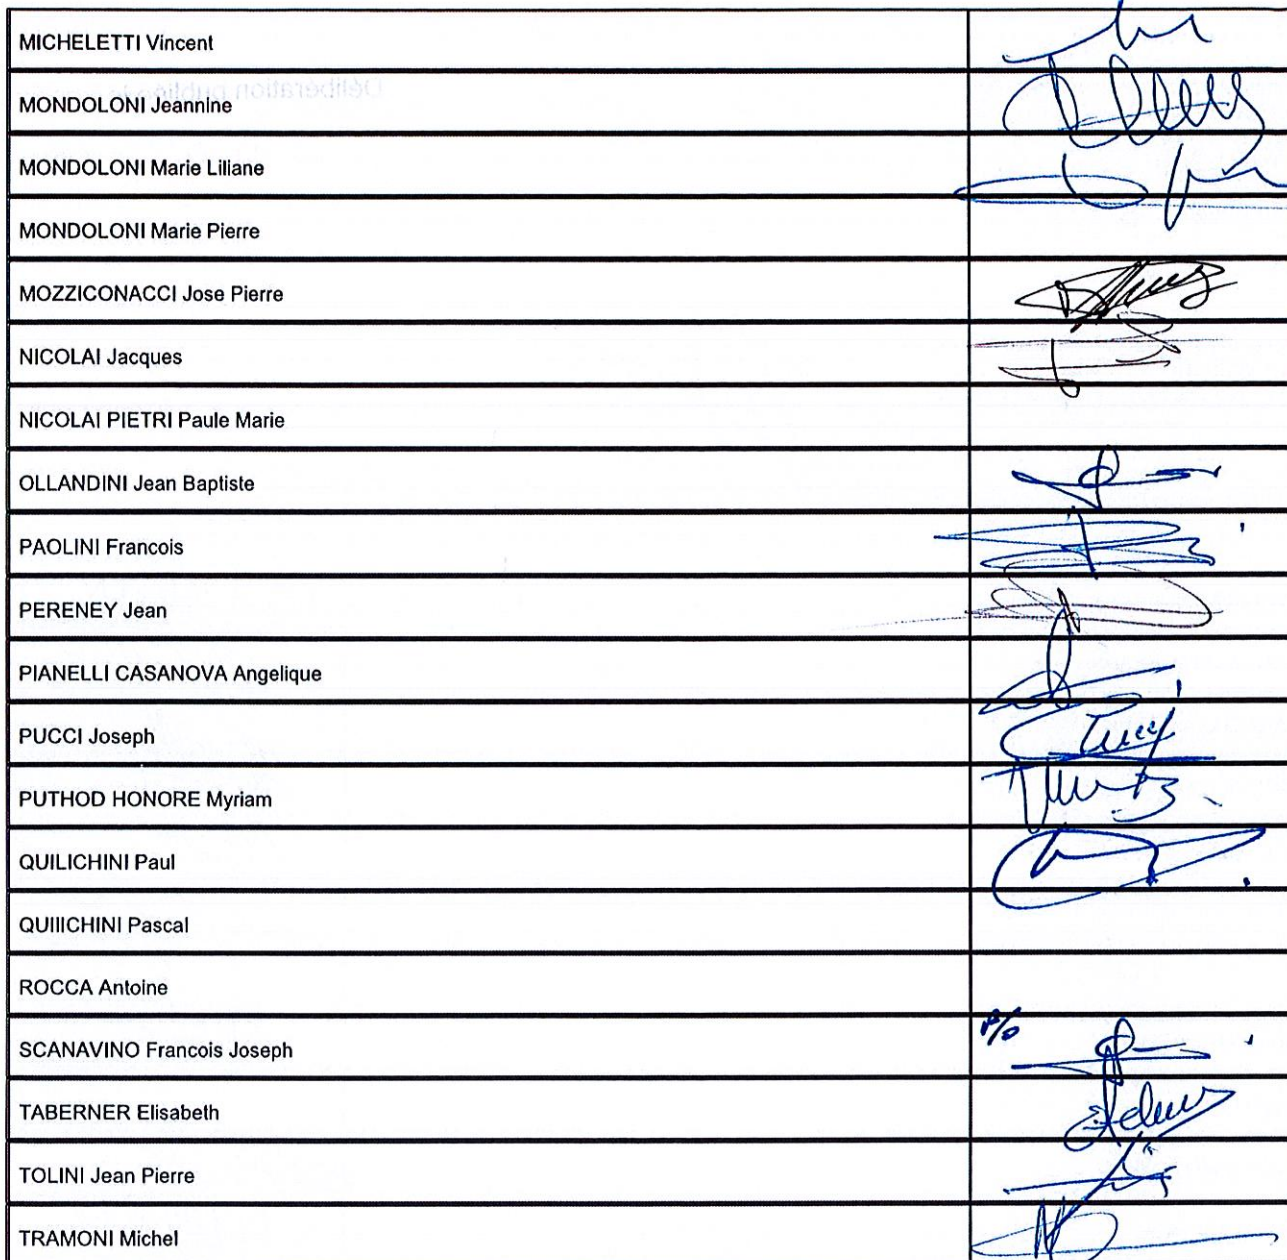 MICHELETTI Vincent
MONDOLONI Jeannine
MONDOLONI Marie Liliane
MONDOLONI Marie Pierre
MOZZICONACCI Jose Pierre
NICOLAI Jacques
NICOLAI PIETRI Paule Marie
OLLANDINI Jean Baptiste
PAOLINI Francois
PERENEY Jean
PIANELLI CASANOVA Angelique
PUCCI Joseph
PUTHOD HONORE Myriam
QUILICHINI Paul
QUIIICHINI Pascal
ROCCA Antoine
SCANAVINO Francois Joseph P/o
TABERNER Elisabeth
TOLINI Jean Pierre
TRAMONI Michel